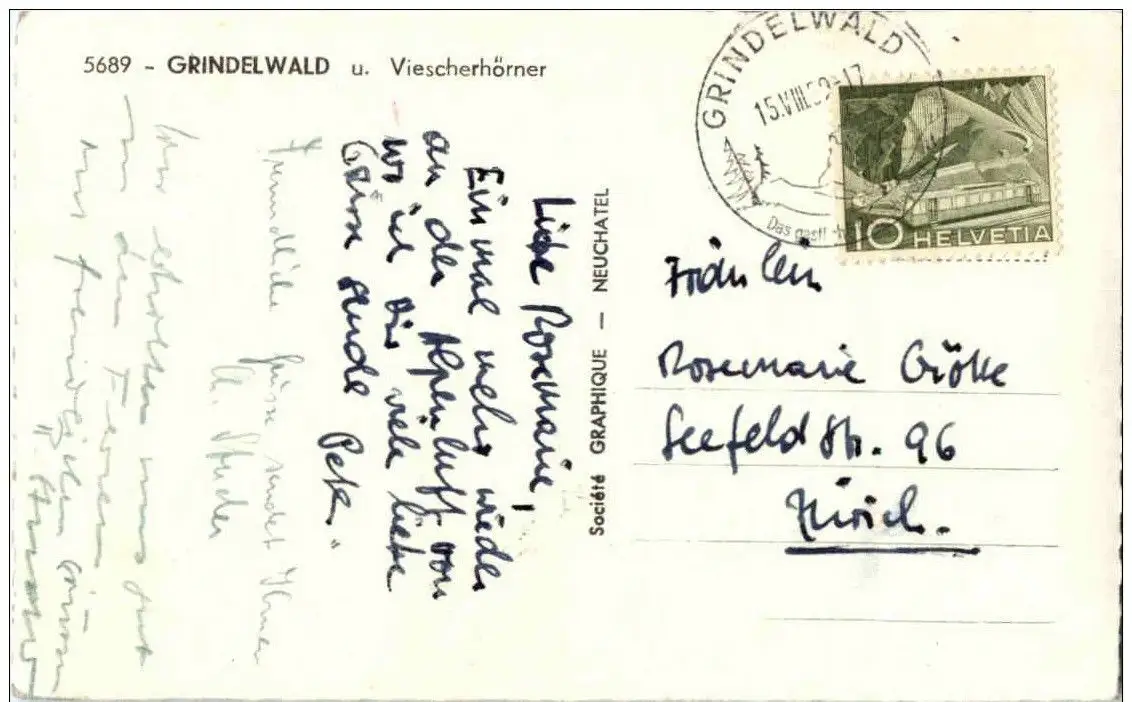 5689 - GRINDELWALD u. Viescherhörner
GRINDELWALD
15.VIII.52-17
Das gastl
10 HELVETIA
Société GRAPHIQUE — NEUCHATEL
Liebe Rosemarie,
Einmal mehr wieder
an der Alpenluft von
wo ich Dir viele liebe
Grüsse sende Peter.
Freundliche Grüsse sendet Ihnen
A. Studer
Wir erholen uns gut
in den Ferien
mit freundlichen Grüssen
Fräulein
Rosemarie Göke
Seefeldstr. 96
Zürich.